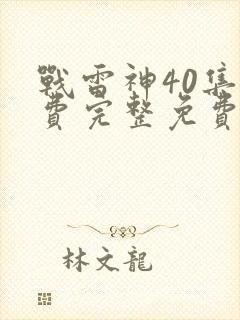 戰雷神40集
費完整免費
林文龍